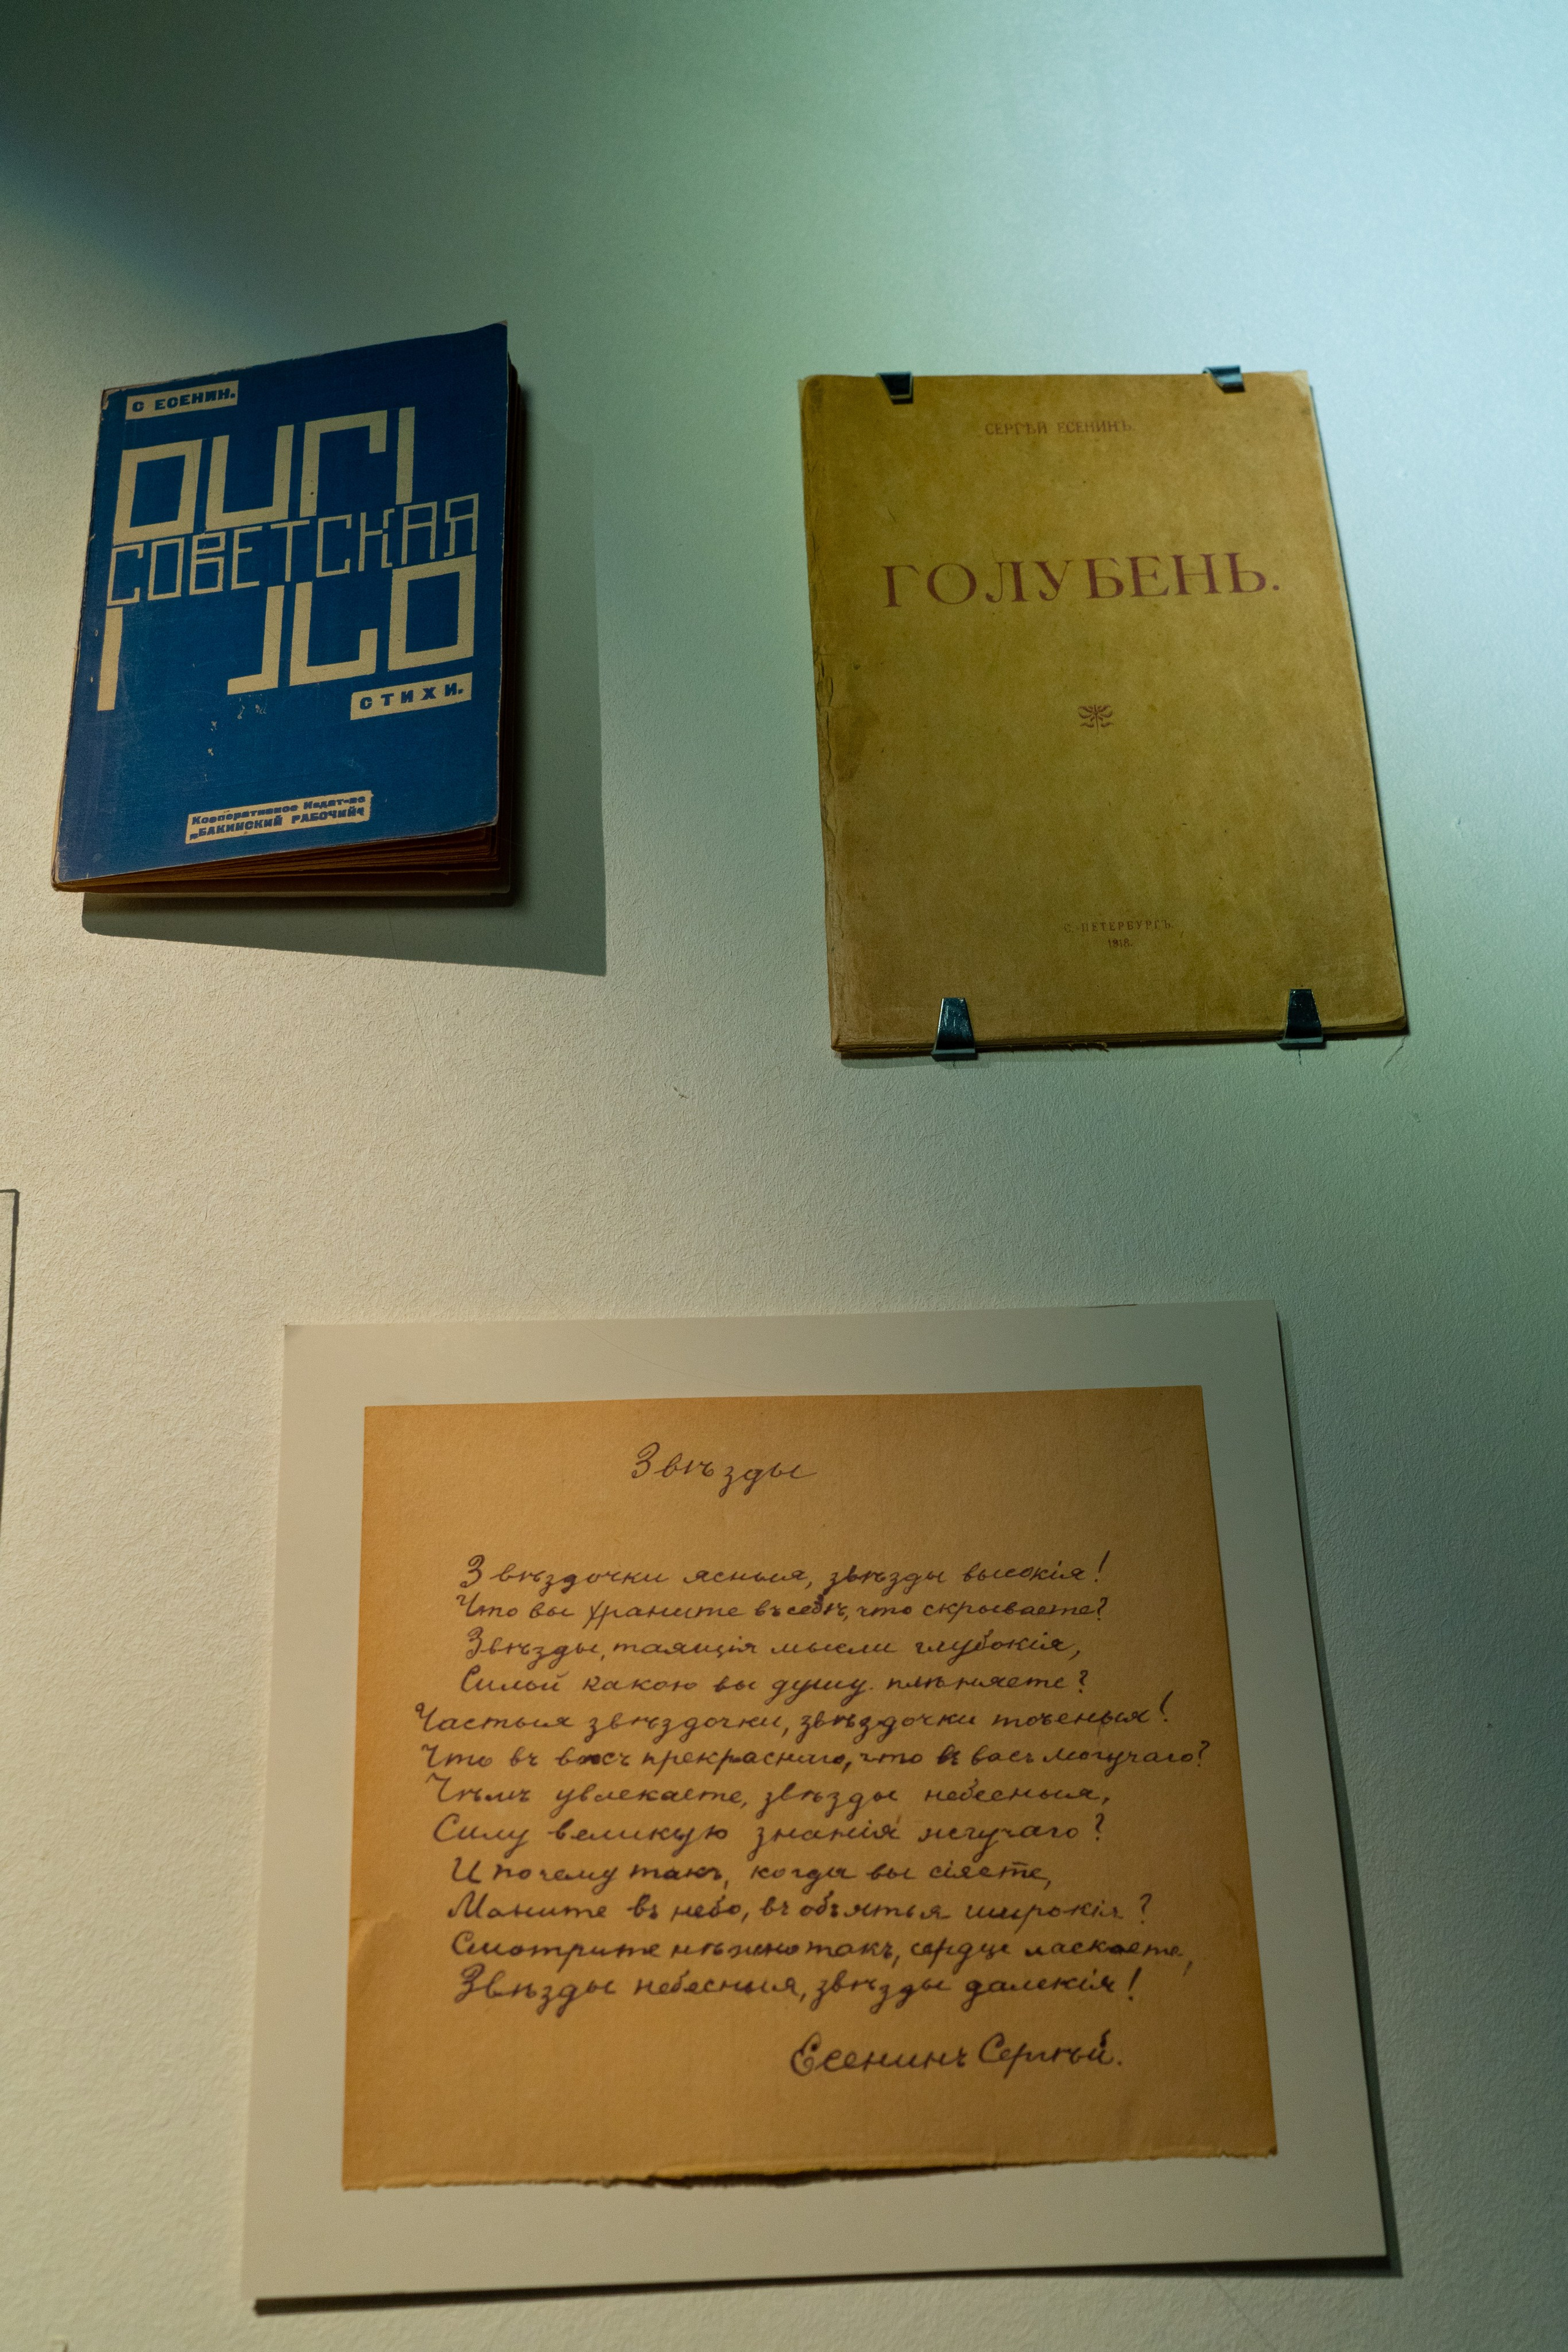 С ЕСЕНИН.
РУСЬ
СОВЕТСКАЯ
СТИХИ.
Кооперативное Издат-во
„БАКИНСКИЙ РАБОЧИЙ“
СЕРГѢЙ ЕСЕНИНЪ.
ГОЛУБЕНЬ.
С.-ПЕТЕРБУРГЪ.
1918.
Звѣзды
Звѣздочки ясныя, звѣзды высокія!
Что вы храните въ себѣ, что скрываете?
Звѣзды, таящія мысли глубокія,
Силой какою вы душу плѣняете?
Частыя звѣздочки, звѣздочки точеныя!
Что въ васъ прекраснаго, что въ васъ могучаго?
Чѣмъ увлекаете, звѣзды небесныя,
Силу великую знанія жгучаго?
И почему такъ, когда вы сіяете,
Маните въ небо, въ объятья широкія?
Смотрите нѣжно такъ, сердце ласкаете,
Звѣзды небесныя, звѣзды далекія!
Есенинъ Сергѣй.